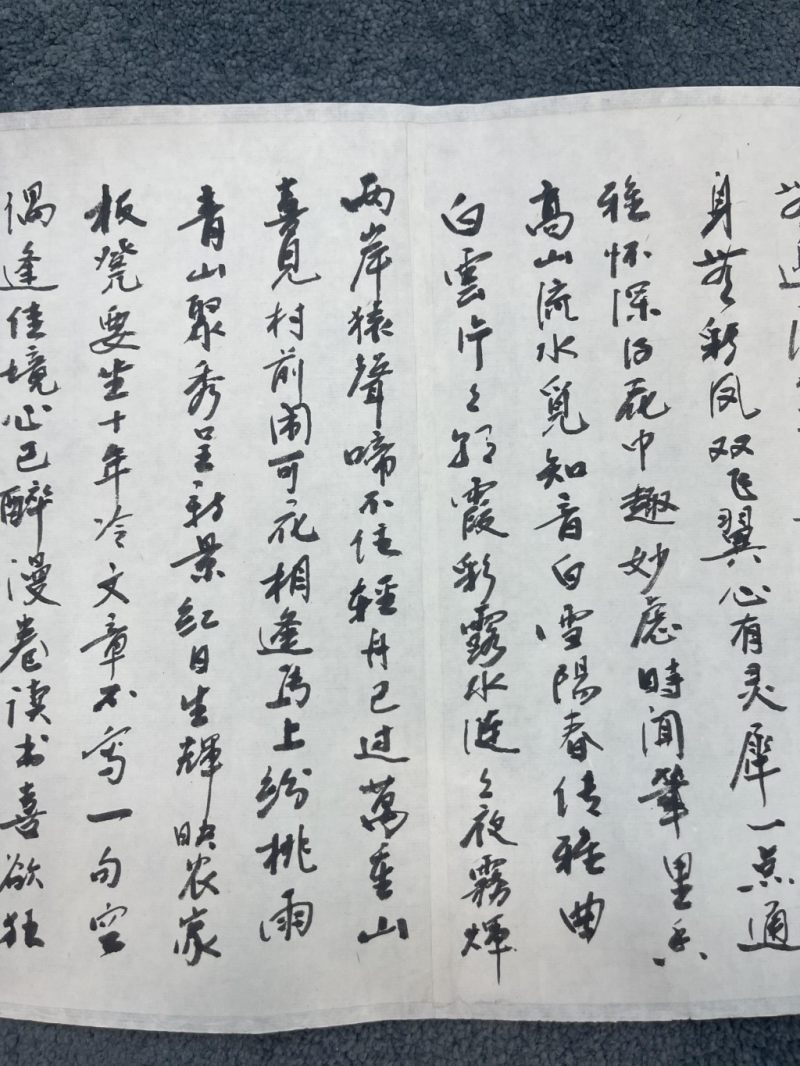 身無彩凤双飞翼心有灵犀一点通
雅怀深得花中趣妙慮時聞筆里香
高山流水覓知音白雪陽春传雅曲
白雲片々朝霞彩露水涟々夜霧煇
两岸猿聲啼不住輕舟已过萬重山
喜見村前闹可花相逢馬上紛桃雨
青山聚秀呈新景红日生輝映农家
板凳要坐十年冷文章不写一句空
偶逢佳境心已醉漫卷读书喜欲狂